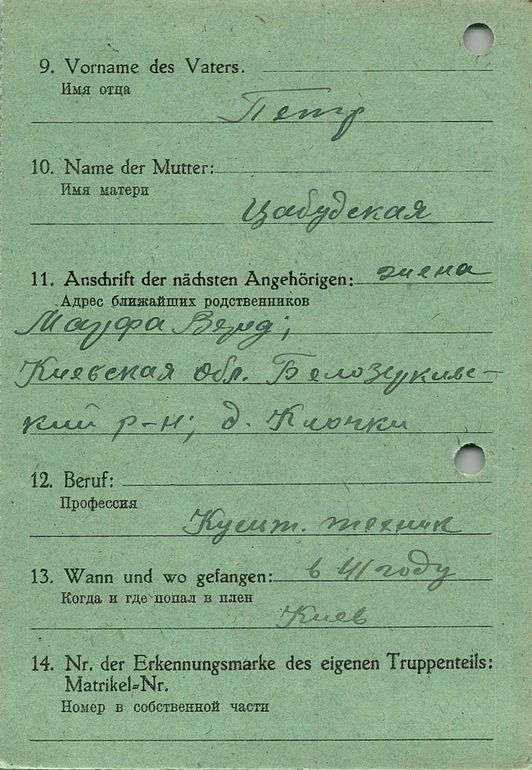 9. Vorname des Vaters.
Имя отца
Петр
10. Name der Mutter:
Имя матери
Цабудская
11. Anschrift der nächsten Angehörigen: жена
Адрес ближайших родственников
Киевская обл.
кий р-н; д. Клочки
12. Beruf:
Профессия
техник
13. Wann und wo gefangen: в 41 году
Когда и где попал в плен
Киев
14. Nr. der Erkennungsmarke des eigenen Truppenteils:
Matrikel=Nr.
Номер в собственной части